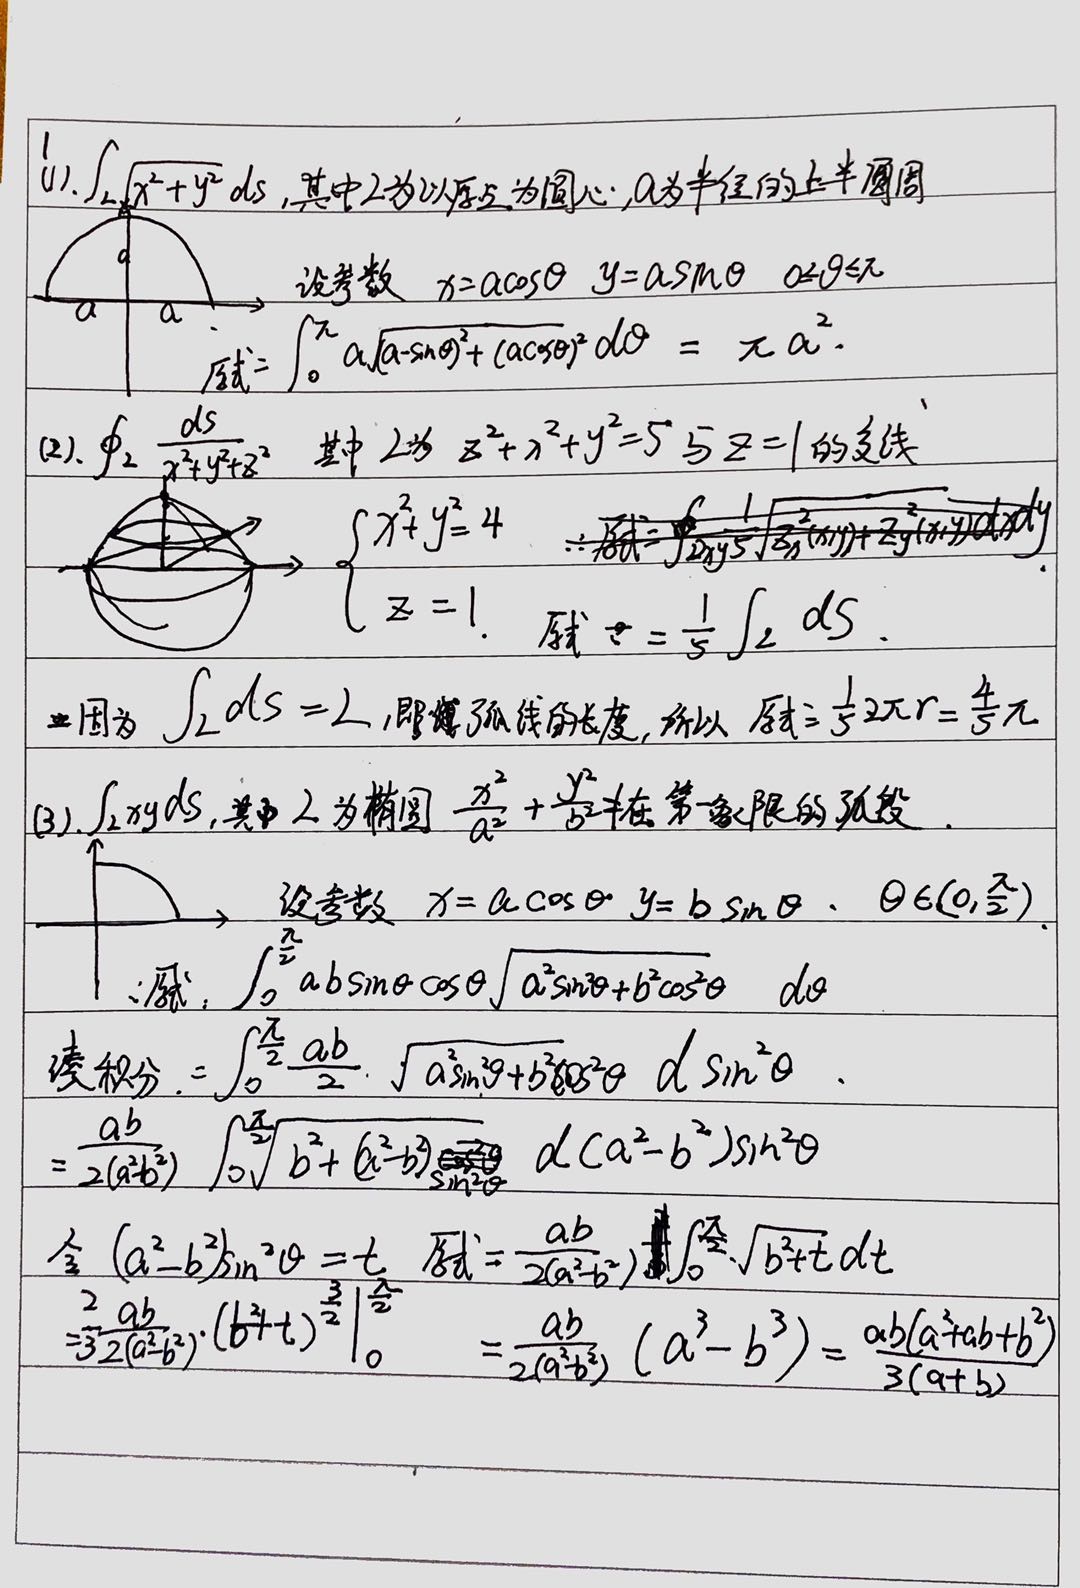 1
(1). ∫_L √(x²+y²) ds, 其中L为以原点为圆心, a为半径的上半圆周
a
a a
设参数 x=acosθ y=asinθ 0≤θ≤π
原式= ∫₀^π a√((a-sinθ)²+(acosθ)²) dθ = πa².
(2). ∮_L ds/(x²+y²+z²) 其中L为 z²+x²+y²=5 与 z=1 的交线
{ x²+y²=4
z=1.
原式 = 1/5 ∫_L ds.
因为 ∫_L ds = L, 即 弧线的长度, 所以 原式= 1/5 2πr = 4/5 π
(3). ∫_L xyds, 其中 L 为椭圆 x²/a² + y²/b² 在第一象限的弧段.
设参数 x=acosθ y=bsinθ. θ∈(0, π/2).
∴原式. ∫₀^(π/2) ab sinθ cosθ √(a²sin²θ+b²cos²θ) dθ
凑积分. = ∫₀^(π/2) ab/2 · √(a²sin²θ+b²cos²θ) d sin²θ.
= ab/(2(a²-b²)) ∫₀^(π/2) √(b²+(a²-b²)sin²θ) d(a²-b²)sin²θ
令 (a²-b²)sin²θ=t 原式= ab/(2(a²-b²)) ∫₀^(π/2) √(b²+t) dt
= 2/3 ab/(2(a²-b²)) · (b²+t)^(3/2) |₀^(π/2) = ab/(2(a²-b²)) (a³-b³) = ab(a²+ab+b²)/(3(a+b))